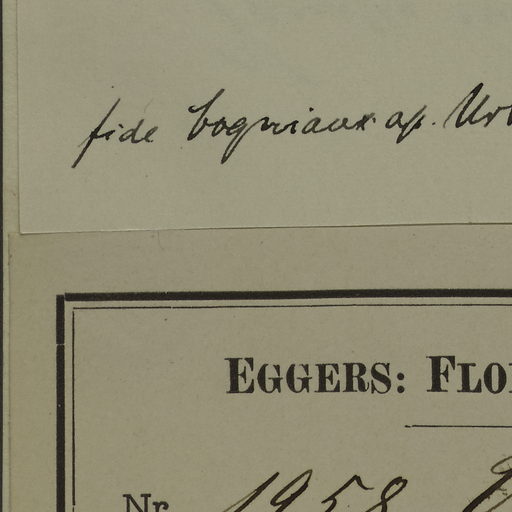 fide Cogniaux ap. Urb
EGGERS: FLO
Nr. 1958